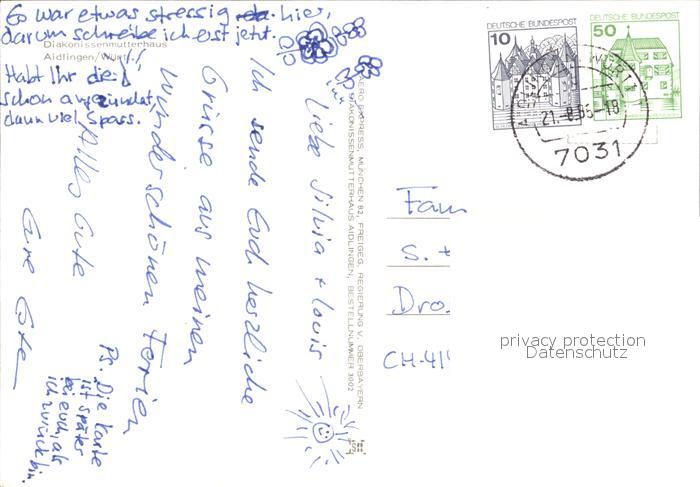 Es war etwas stressig hier,
darum schreibe ich erst jetzt.
Diakonissenmutterhaus
Aidlingen/Württ.
Habt Ihr die
schon angezündet,
dann viel Spass.
Liebe Silvia + Louis
Ich sende Euch herzliche
Grüsse aus meinen
wunderschönen Ferien
Alles Gute
Eure
Ps. Die Karte
ist später
bei euch, als
ich zurück bin.
AERO EXPRESS, MÜNCHEN 82, FREIGEG. REGIERUNG V. OBERBAYERN
DIAKONISSENMUTTERHAUS AIDLINGEN, BESTELLNUMMER 3002
DEUTSCHE BUNDESPOST
10
DEUTSCHE BUNDESPOST
50
21.-8.85-18
7031
Fam
S. +
Dro
CH-41
privacy protection
Datenschutz